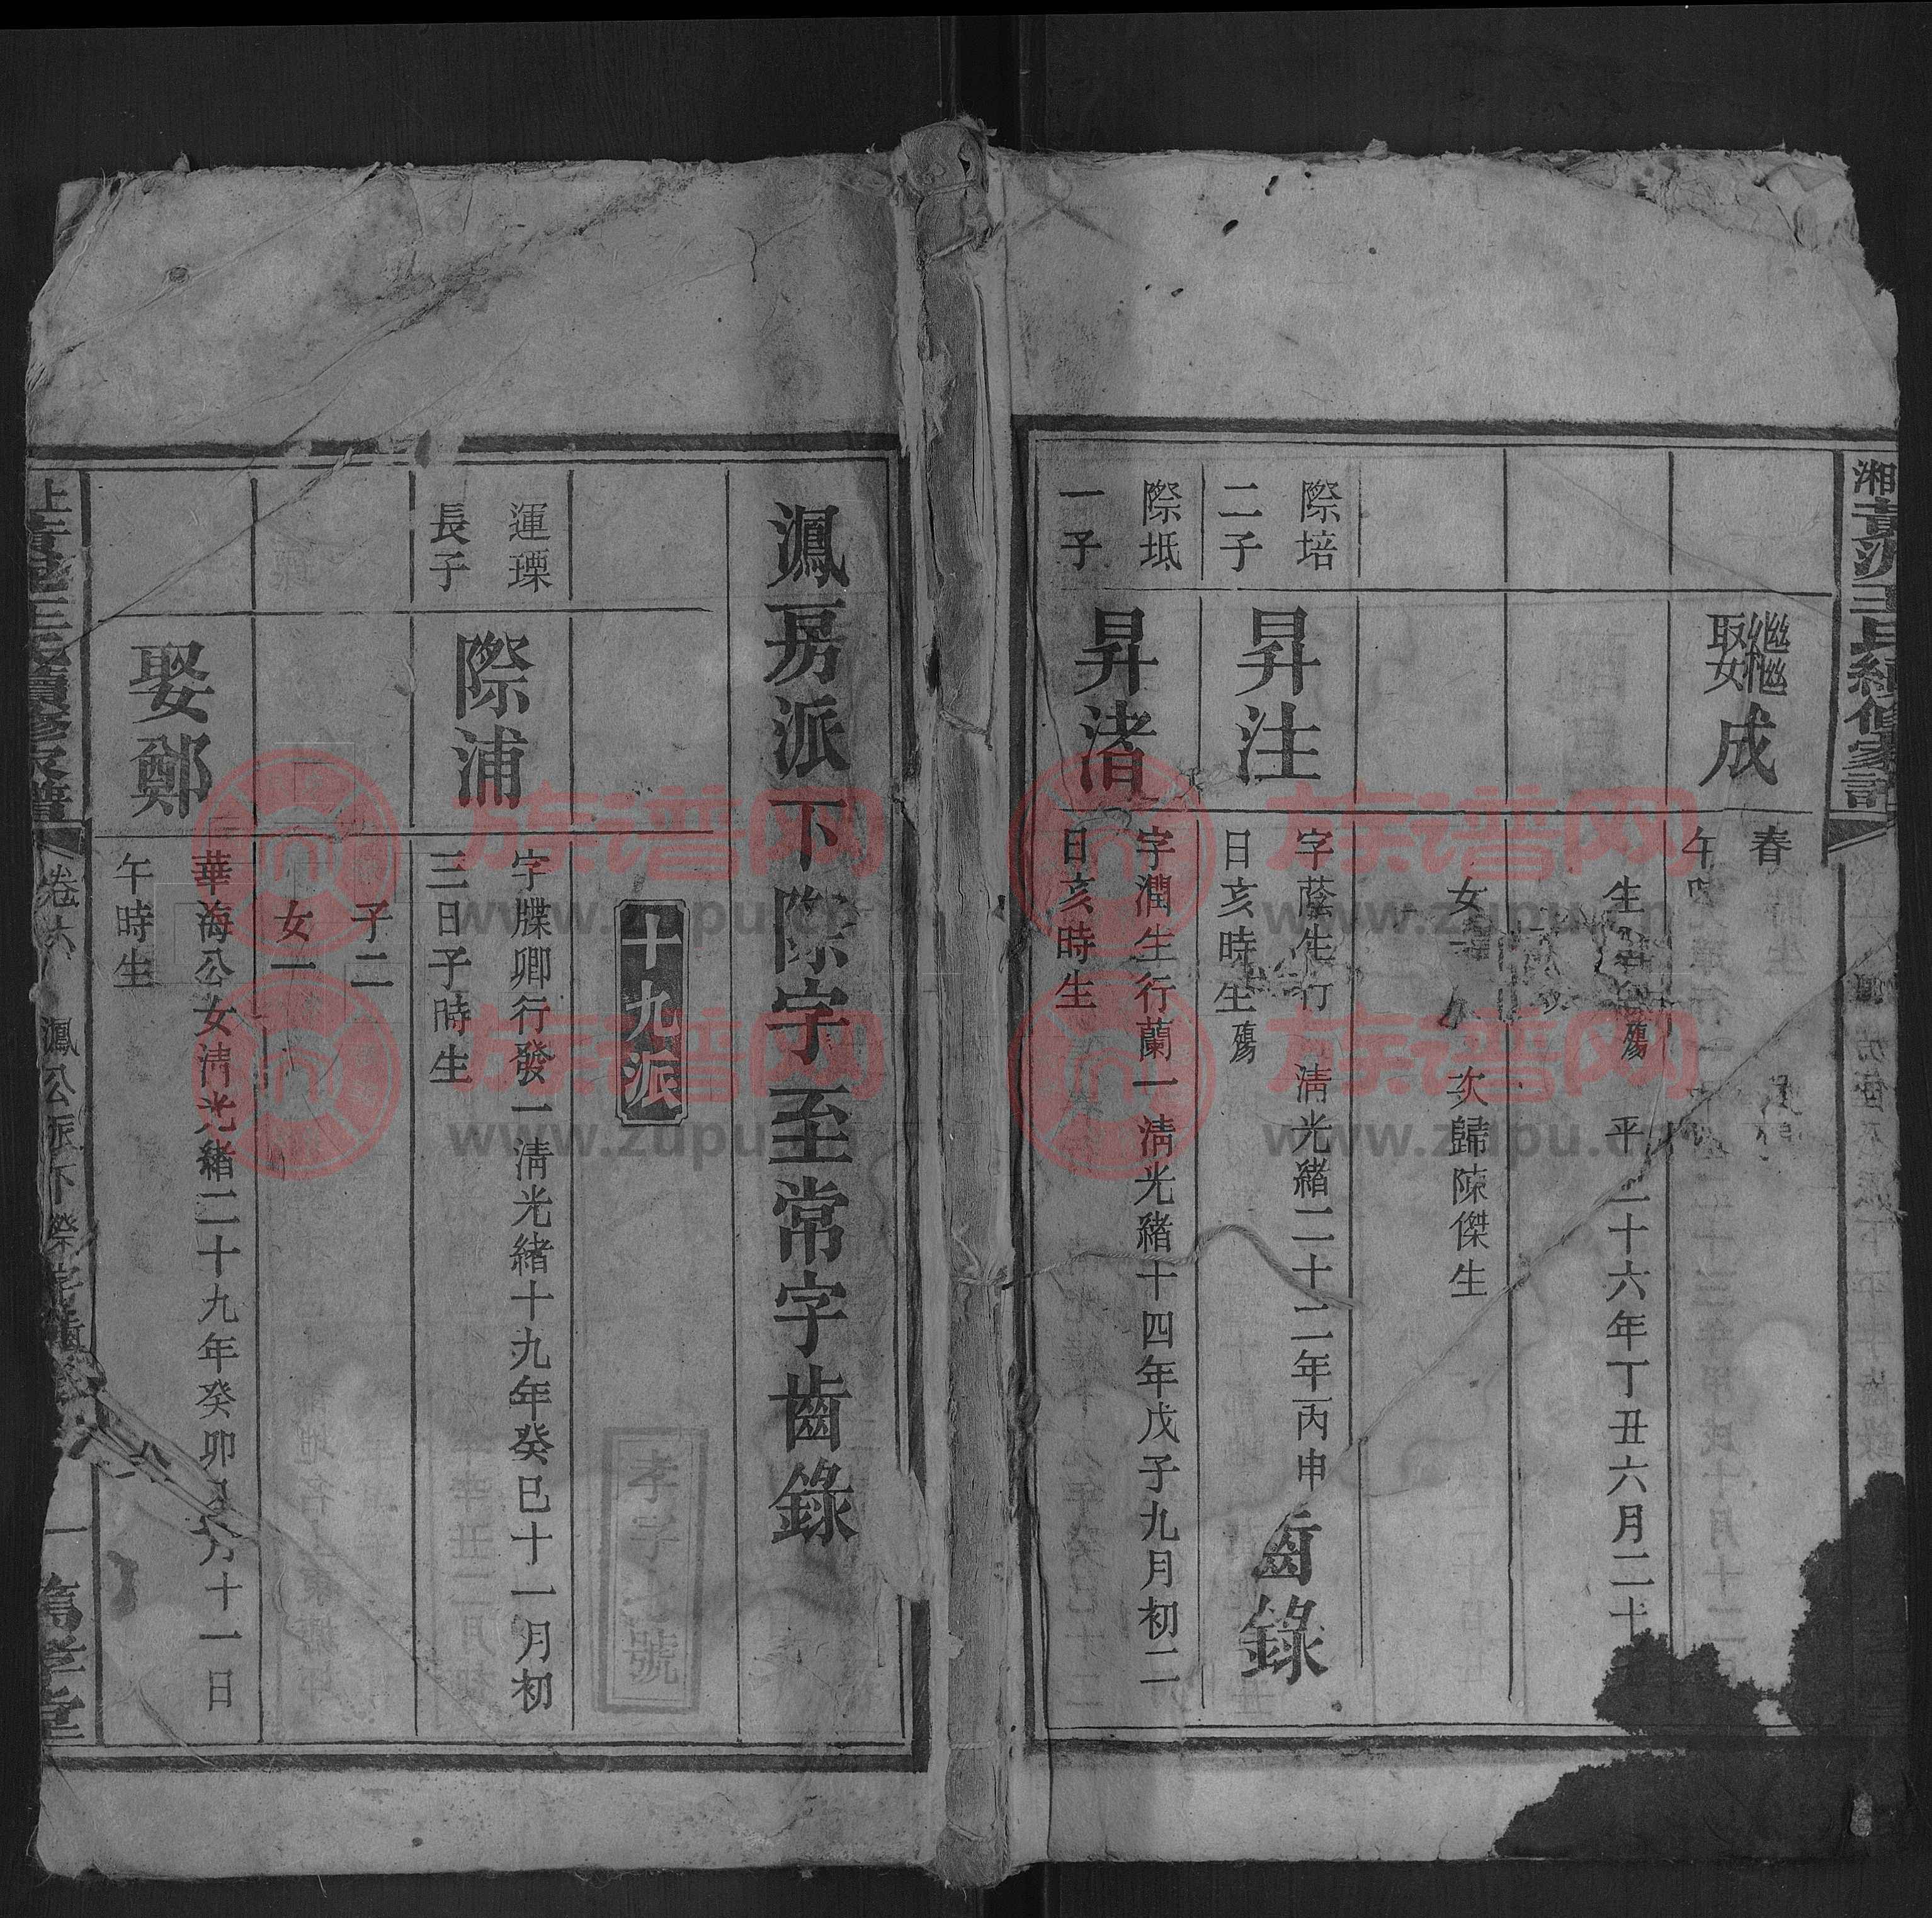 繼
娶
成
春
午
生
殤
平
二十六年丁丑六月二十
女
次歸陳傑生
際培
二子
昇注
字蔭生行
清光緒二十二年丙申
日亥時生殤
齒錄
際坻
一子
昇渚
字潤生行蘭一清光緒十四年戊子九月初二
日亥時生
鳳房派下際字至常字齒錄
十九派
孝字號
運瑮
長子
際浦
字牒卿行發一清光緒十九年癸巳十一月初
三日子時生
子二
女一
娶鄭
華海公女清光緒二十九年癸卯
月十一日
午時生
卷六
鳳公派下際字齒
八
一
篤孝堂
族谱网
www.zupu.cn
族谱网
www.zupu.cn
族谱网
www.zupu.cn
族谱网
www.zupu.cn